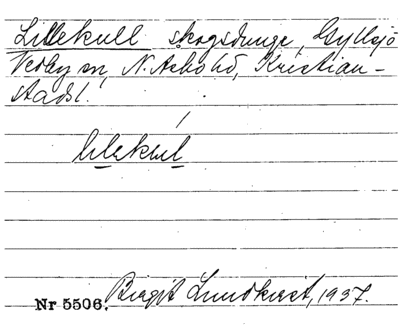 Lillekull skogsdunge, Gyllsjö
Verby sn, N. Åsbo hd, Kristian-
stads l.
lilekul
Nr 5506. Birgit Lundkvist, 1937.